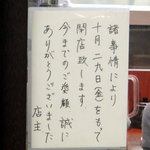 諸事情により
十月二九日(金)をもって
閉店致します
今までのご愛顧 誠に
ありがとうございました
店主